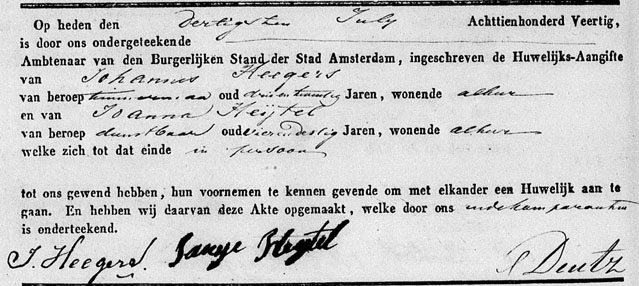 Op heden den dertigsten July Achttienhonderd Veertig,
is door ons ondergeteekende
Ambtenaar van den Burgerlijken Stand der Stad Amsterdam, ingeschreven de Huwelijks-Aangifte
van Johannes Heegers
van beroep timmerman oud drie en twintig Jaren, wonende alhier
en van Joanna Heijtel
van beroep dienstbaar oud vierendertig Jaren, wonende alhier
welke zich tot dat einde in persoon
tot ons gewend hebben, hun voornemen te kennen gevende om met elkander een Huwelijk aan te
gaan. En hebben wij daarvan deze Akte opgemaakt, welke door ons en de komparanten
is onderteekend.
J. Heegers. Heytel Deutz